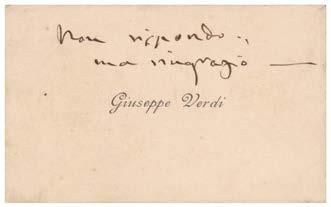 Non rispondo..
ma ringrazio —
Giuseppe Verdi